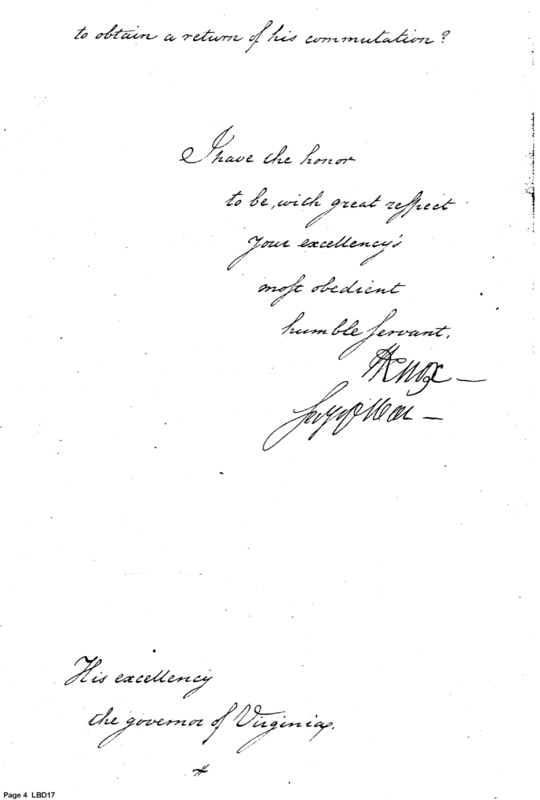 to obtain a return of his commutation?
I have the honor
to be, with great respect
your excellency's
most obedient
humble servant,
HKnox
Secy of War
His excellency
the governor of Virginia.
Page 4 LBD17